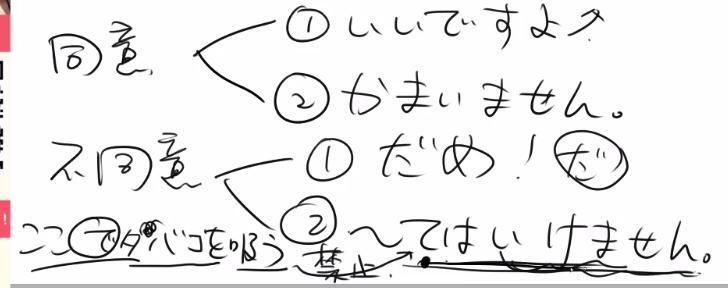 同意 ① いいですよ↗
② かまいません。
不同意 ① だめ!だ
② ~てはいけません。
ここでタバコを吸う 禁止